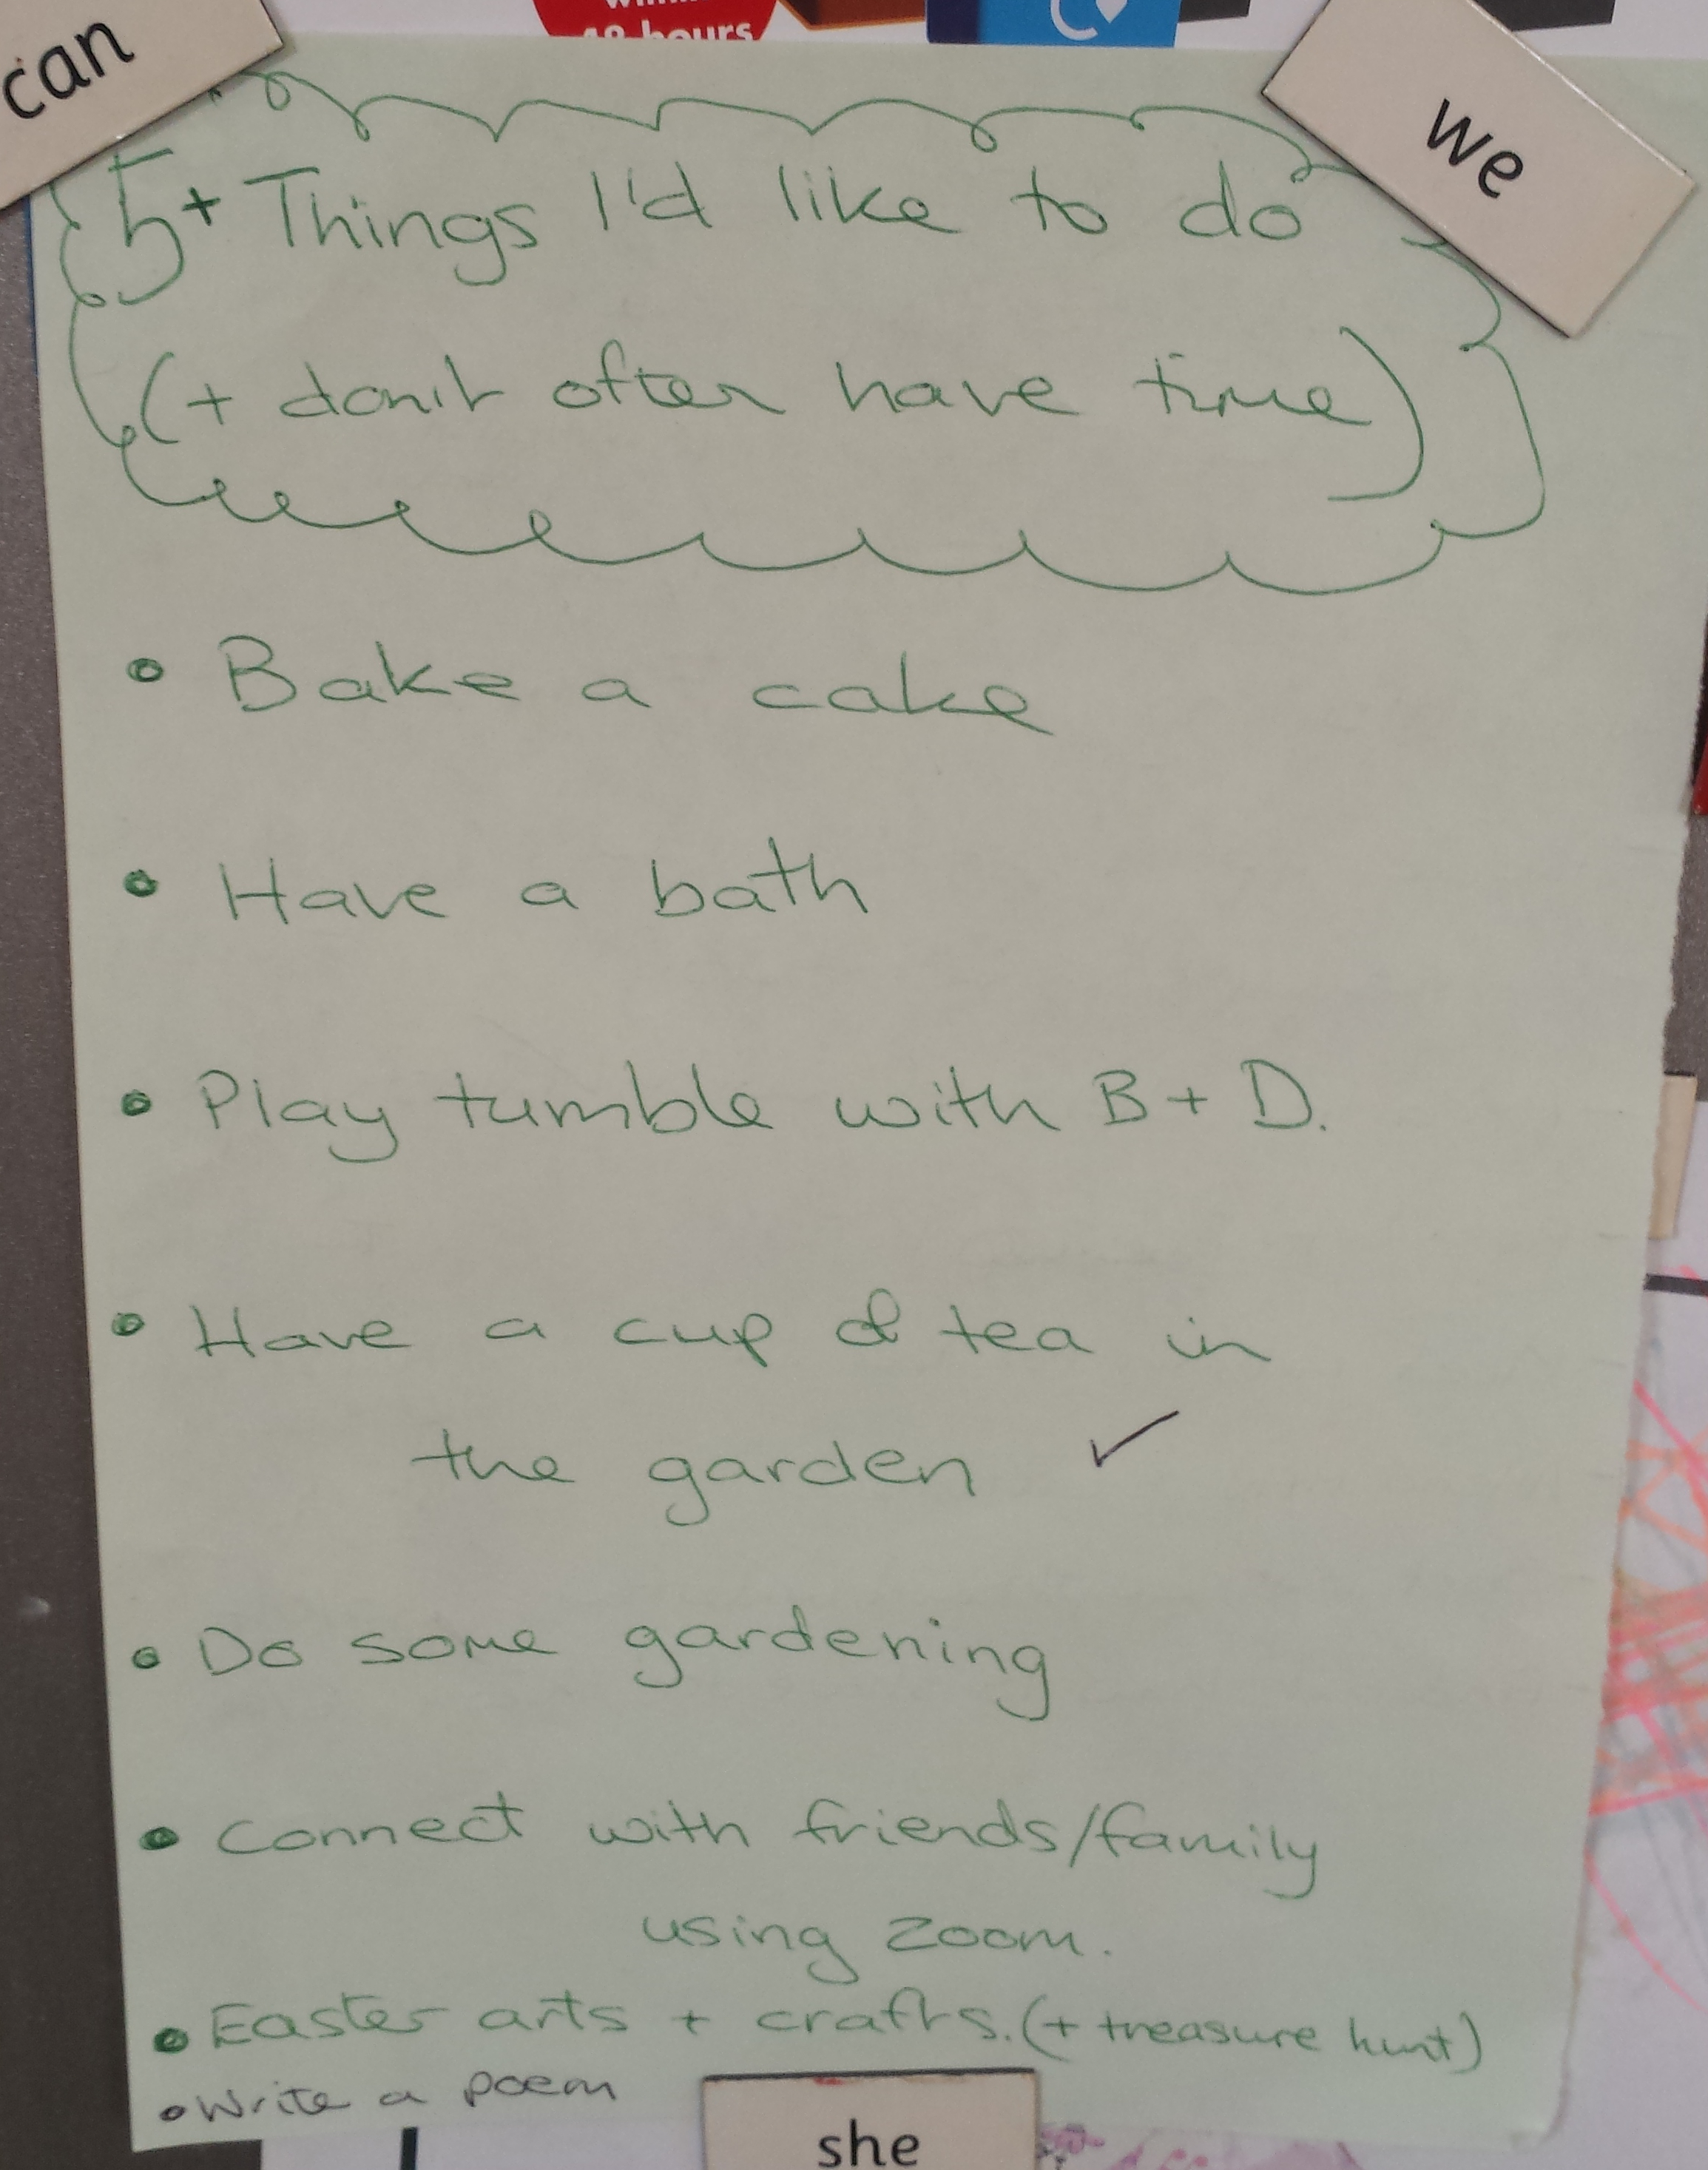 48 hours
can
we
5+ Things I'd like to do
(+ don't often have time)
• Bake a cake
• Have a bath
• Play tumble with B + D.
• Have a cup of tea in
the garden ✓
• Do some gardening
• Connect with friends/family
using zoom.
• Easter arts + crafts. (+ treasure hunt)
• Write a poem
she